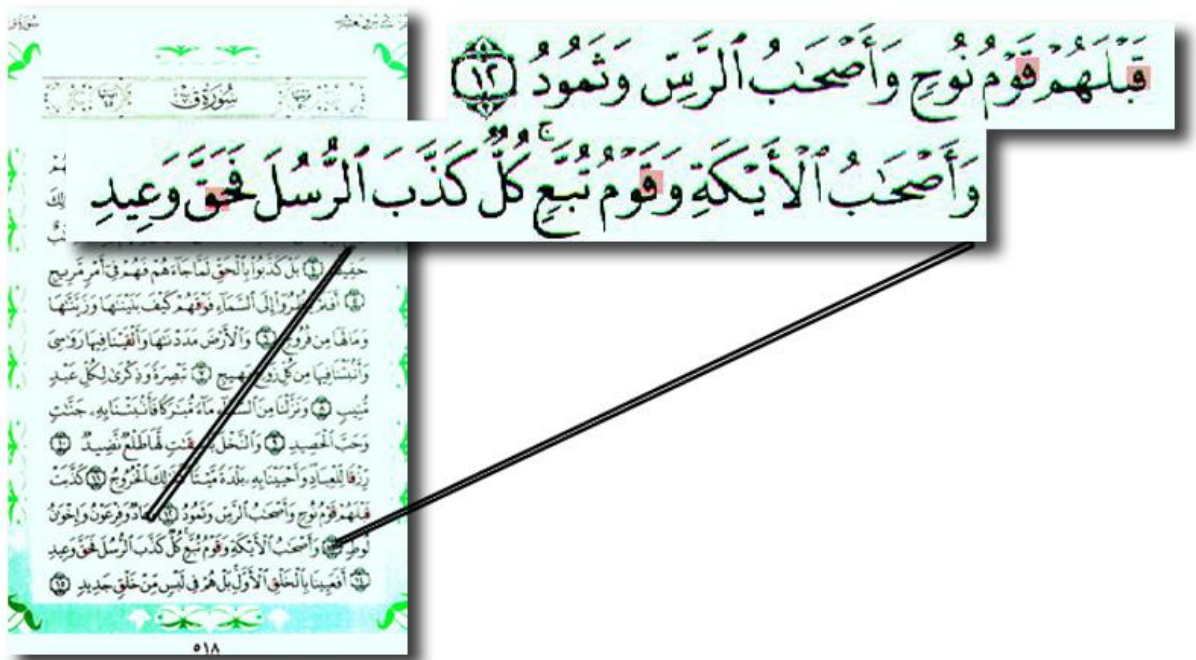 قَبْلَهُمْ قَوْمُ نُوحٍ وَأَصْحَٰبُ ٱلرَّسِّ وَثَمُودُ ١٢
وَأَصْحَٰبُ ٱلْأَيْكَةِ وَقَوْمُ تُبَّعٍ ۚ كُلٌّ كَذَّبَ ٱلرُّسُلَ فَحَقَّ وَعِيدِ
سُورَةُ ق
بَلْ كَذَّبُوا۟ بِٱلْحَقِّ لَمَّا جَآءَهُمْ فَهُمْ فِىٓ أَمْرٍ مَّرِيجٍ
إِلَى ٱلسَّمَآءِ فَوْقَهُمْ كَيْفَ بَنَيْنَٰهَا وَزَيَّنَّٰهَا
وَمَا لَهَا مِن فُرُوجٍ ٦ وَٱلْأَرْضَ مَدَدْنَٰهَا وَأَلْقَيْنَا فِيهَا رَوَٰسِىَ
وَأَنۢبَتْنَا فِيهَا مِن كُلِّ زَوْجٍۭ بَهِيجٍ ٧ تَبْصِرَةً وَذِكْرَىٰ لِكُلِّ عَبْدٍ
مُّنِيبٍ ٨ وَنَزَّلْنَا مِنَ مَآءً مُّبَٰرَكًا فَأَنۢبَتْنَا بِهِۦ جَنَّٰتٍ
وَحَبَّ ٱلْحَصِيدِ ٩ وَٱلنَّخْلَ لَّهَا طَلْعٌ نَّضِيدٌ ١٠
رِّزْقًا لِّلْعِبَادِ وَأَحْيَيْنَا بِهِۦ بَلْدَةً مَّيْتًا ٱلْخُرُوجُ ١١ كَذَّبَتْ
قَبْلَهُمْ قَوْمُ نُوحٍ وَأَصْحَٰبُ ٱلرَّسِّ وَثَمُودُ ١٢ وَفِرْعَوْنُ وَإِخْوَٰنُ
لُوطٍ وَأَصْحَٰبُ ٱلْأَيْكَةِ وَقَوْمُ تُبَّعٍ ۚ كُلٌّ كَذَّبَ ٱلرُّسُلَ فَحَقَّ وَعِيدِ
١٤ أَفَعَيِينَا بِٱلْخَلْقِ ٱلْأَوَّلِ ۚ بَلْ هُمْ فِى لَبْسٍ مِّنْ خَلْقٍ جَدِيدٍ ١٥
٥١٨